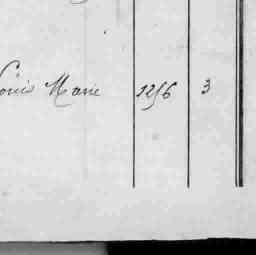 Louis Marie 1256 3